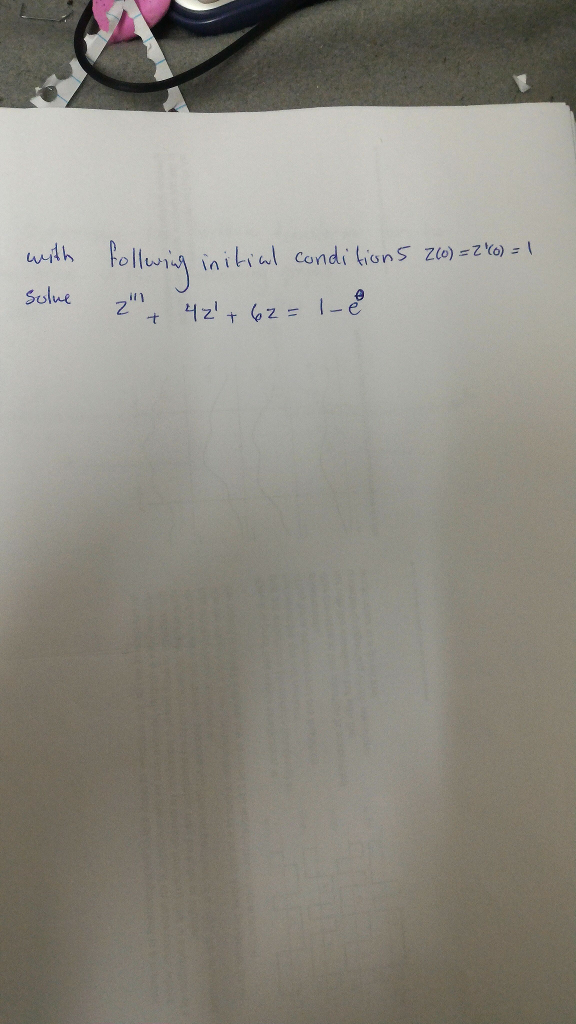 with following initial conditions z(0) = z'(0) = 1
solve z''' + 4z' + 6z = 1 - e^θ